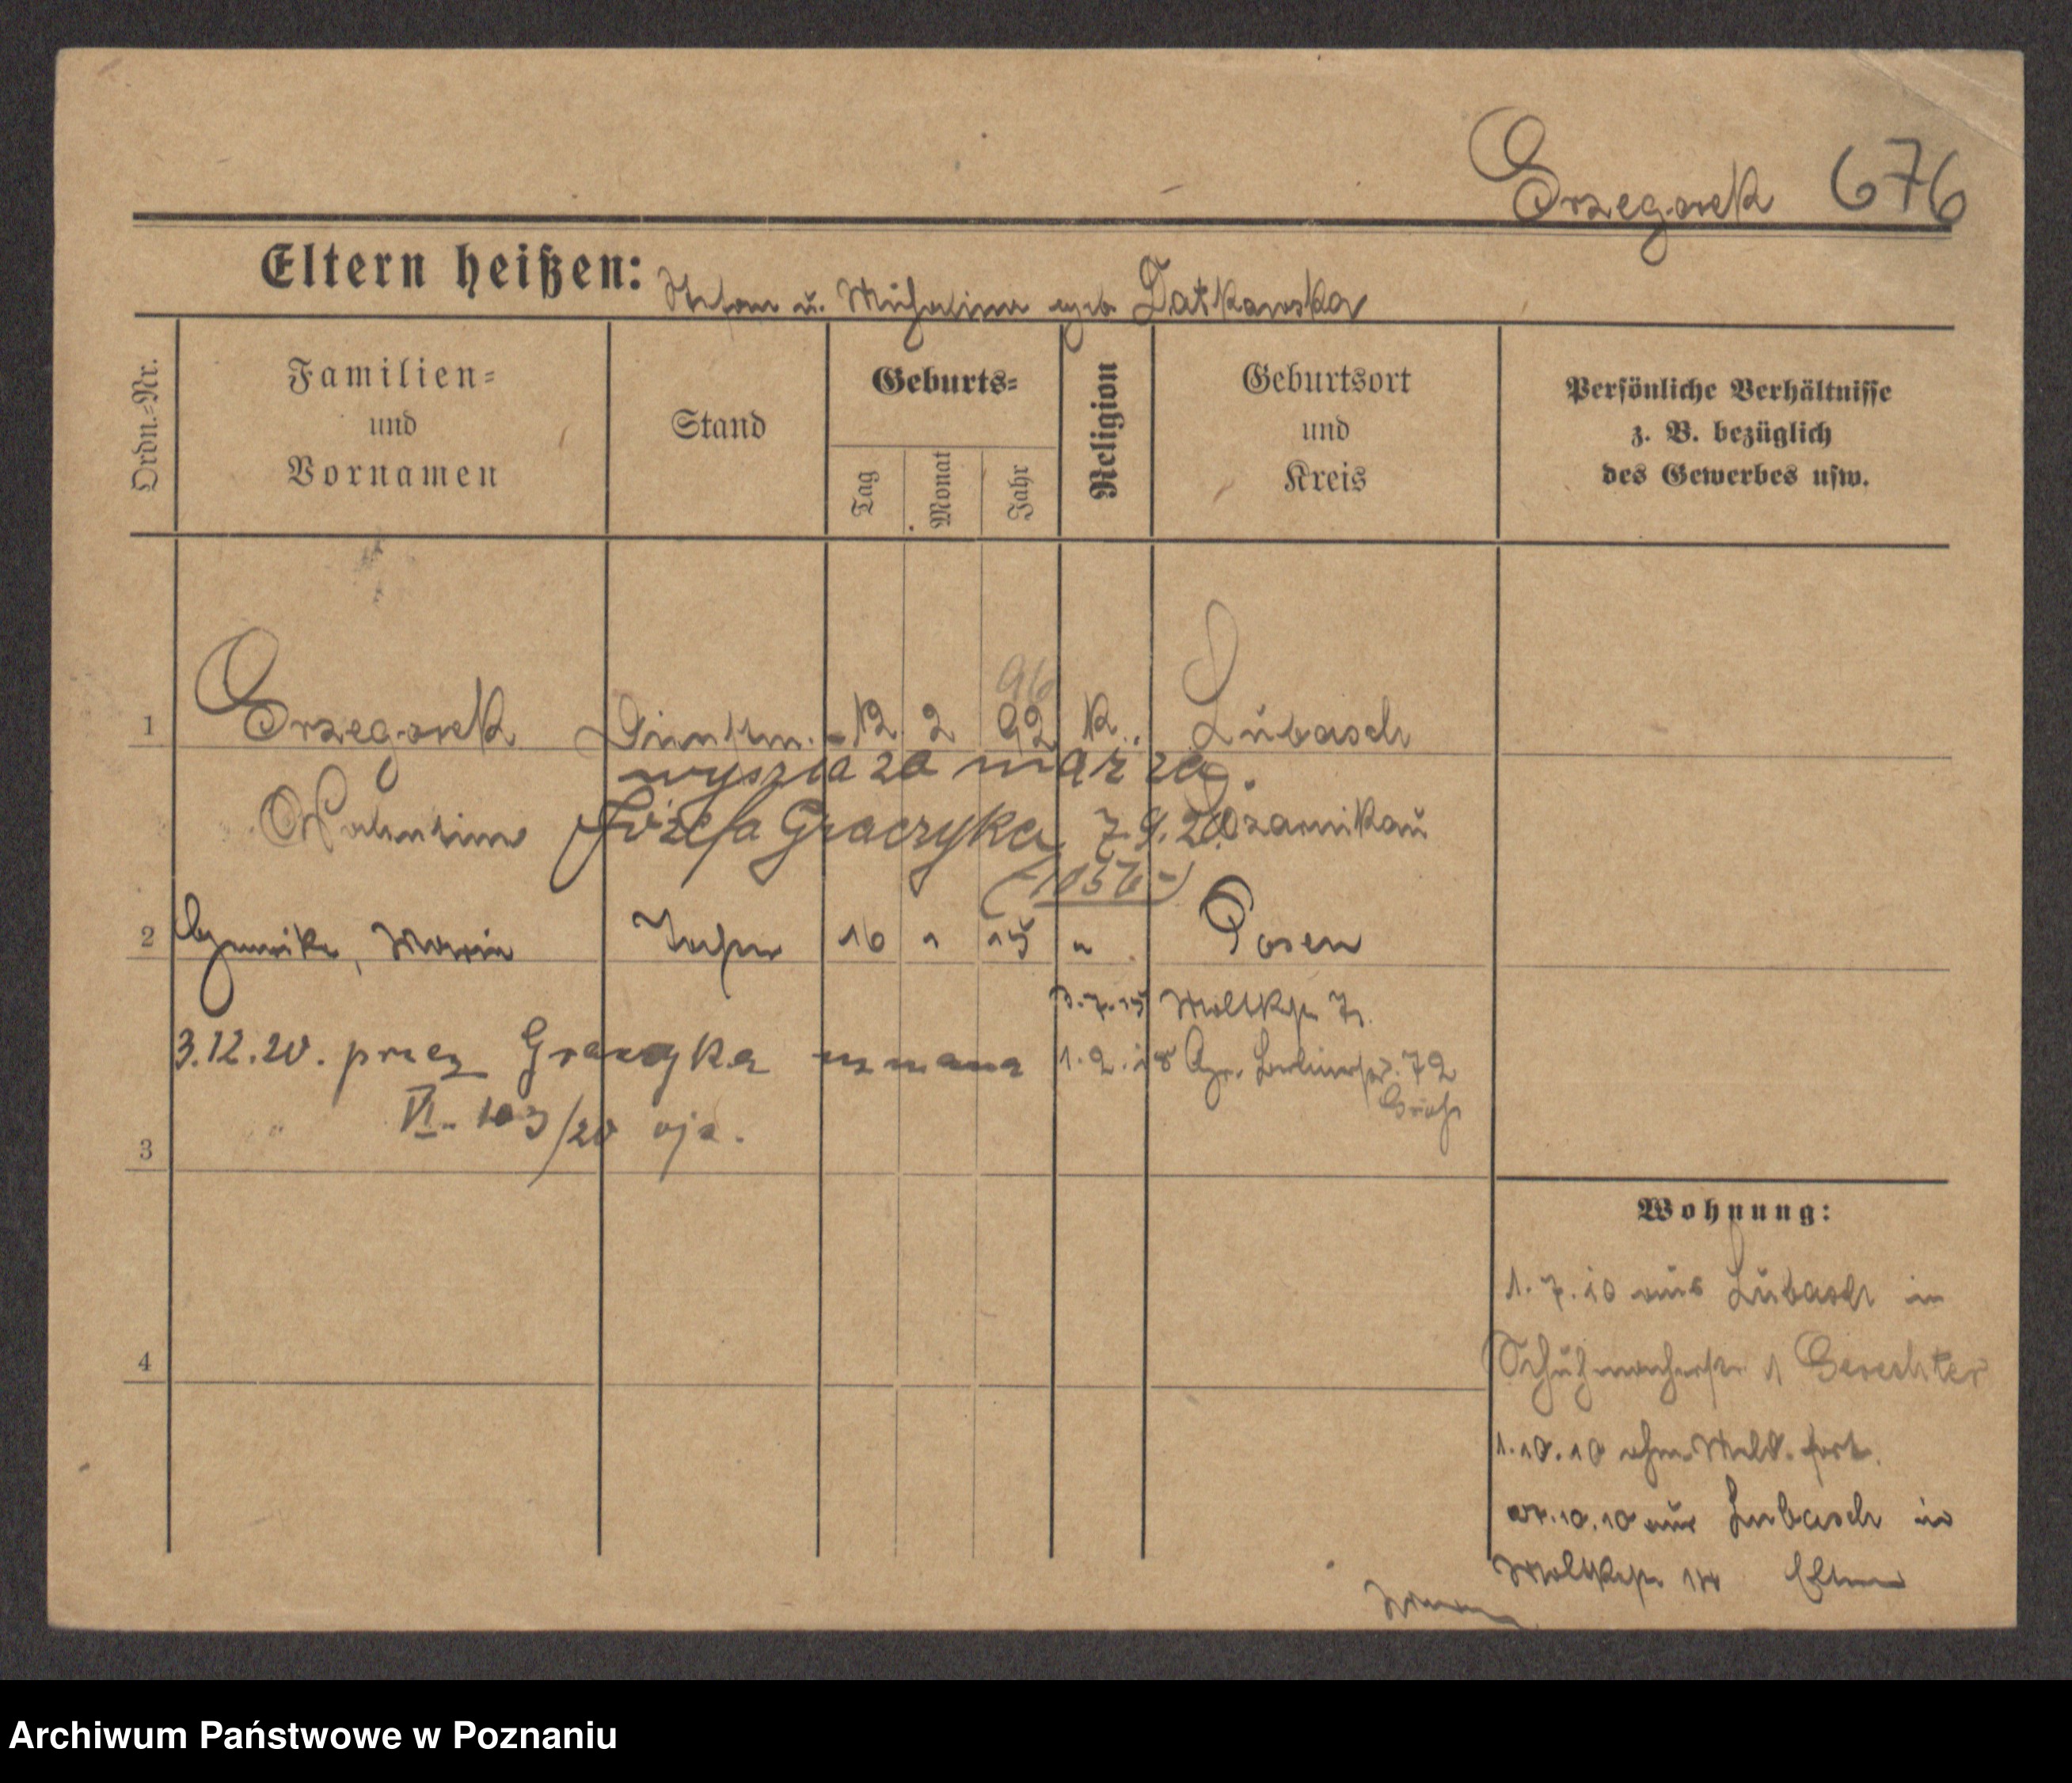 Grzegorek 676
Eltern heißen: Stefan u. Michalina geb. Datkowska
Ordn.=Nr.
Familien=
und
Vornamen
Stand
Geburts=
Tag
Monat
Jahr
Religion
Geburtsort
und
Kreis
Persönliche Verhältnisse
z. B. bezüglich
des Gewerbes usw.
96
1 Grzegorek Dienstm. 12 2 92 k. Lubasch
wyszła za mąż za
Valentina Józefa Graczyka 7.9.20. Czarnikau
2 Maria Tochter 16 " 15 " Posen
3.7.15 Moltkestr 7
3.12.20. przez Graczyka uznana 1.2.18 Gr. Berlinerstr. 72
VI. 103/20
3
4
Wohnung:
1.7.10 aus Lubasch in
Schuhmacherstr 1 Gerechter
1.10.10 ohne Meld. fort.
10.10 aus Lubasch in
Moltkestr
Archiwum Państwowe w Poznaniu